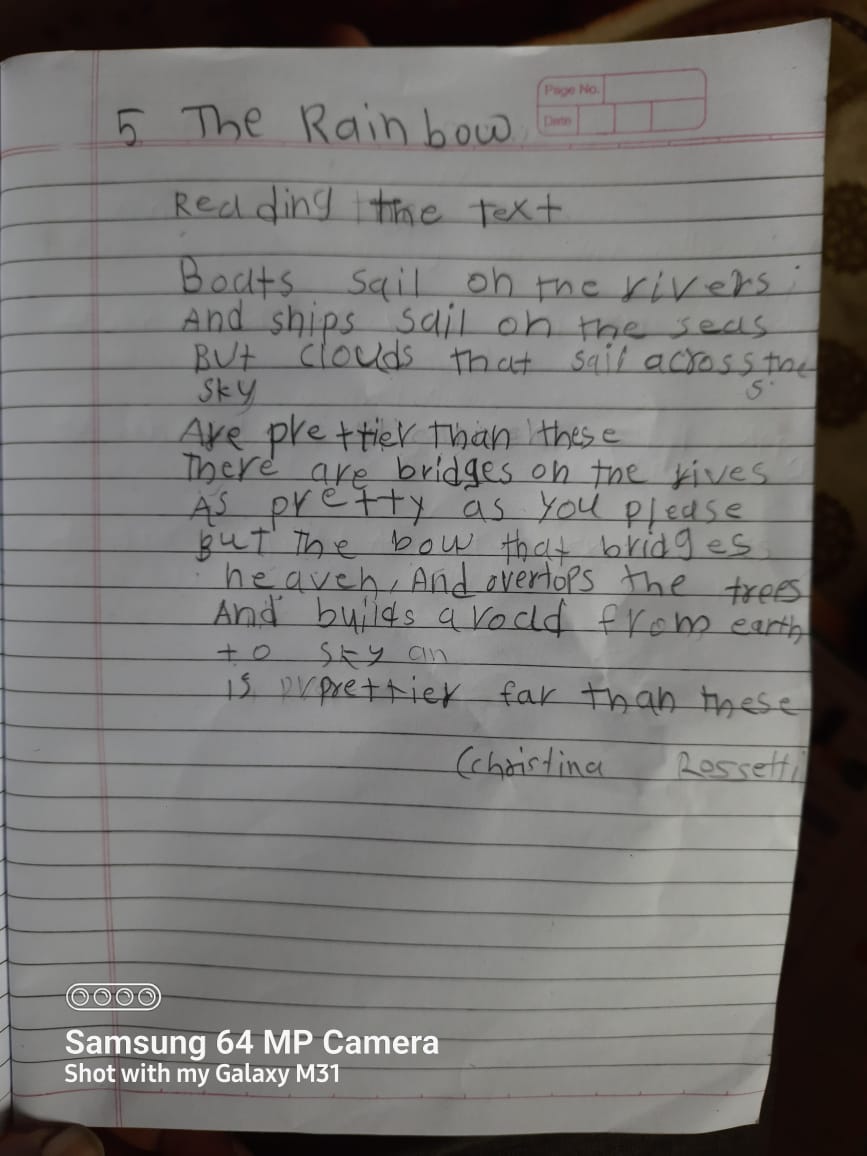 Page No.
Date
5 The Rainbow
Reading the Text
Boats sail on the rivers
And ships sail on the seas
But clouds that sail across the
sky s
Are prettier than these
There are bridges on the rives
As pretty as you please
But the bow that bridges
heaven, And overtops the trees
And builds a road from earth
to sky an
is prprettier far than these
(christina Rossetti
Samsung 64 MP Camera
Shot with my Galaxy M31